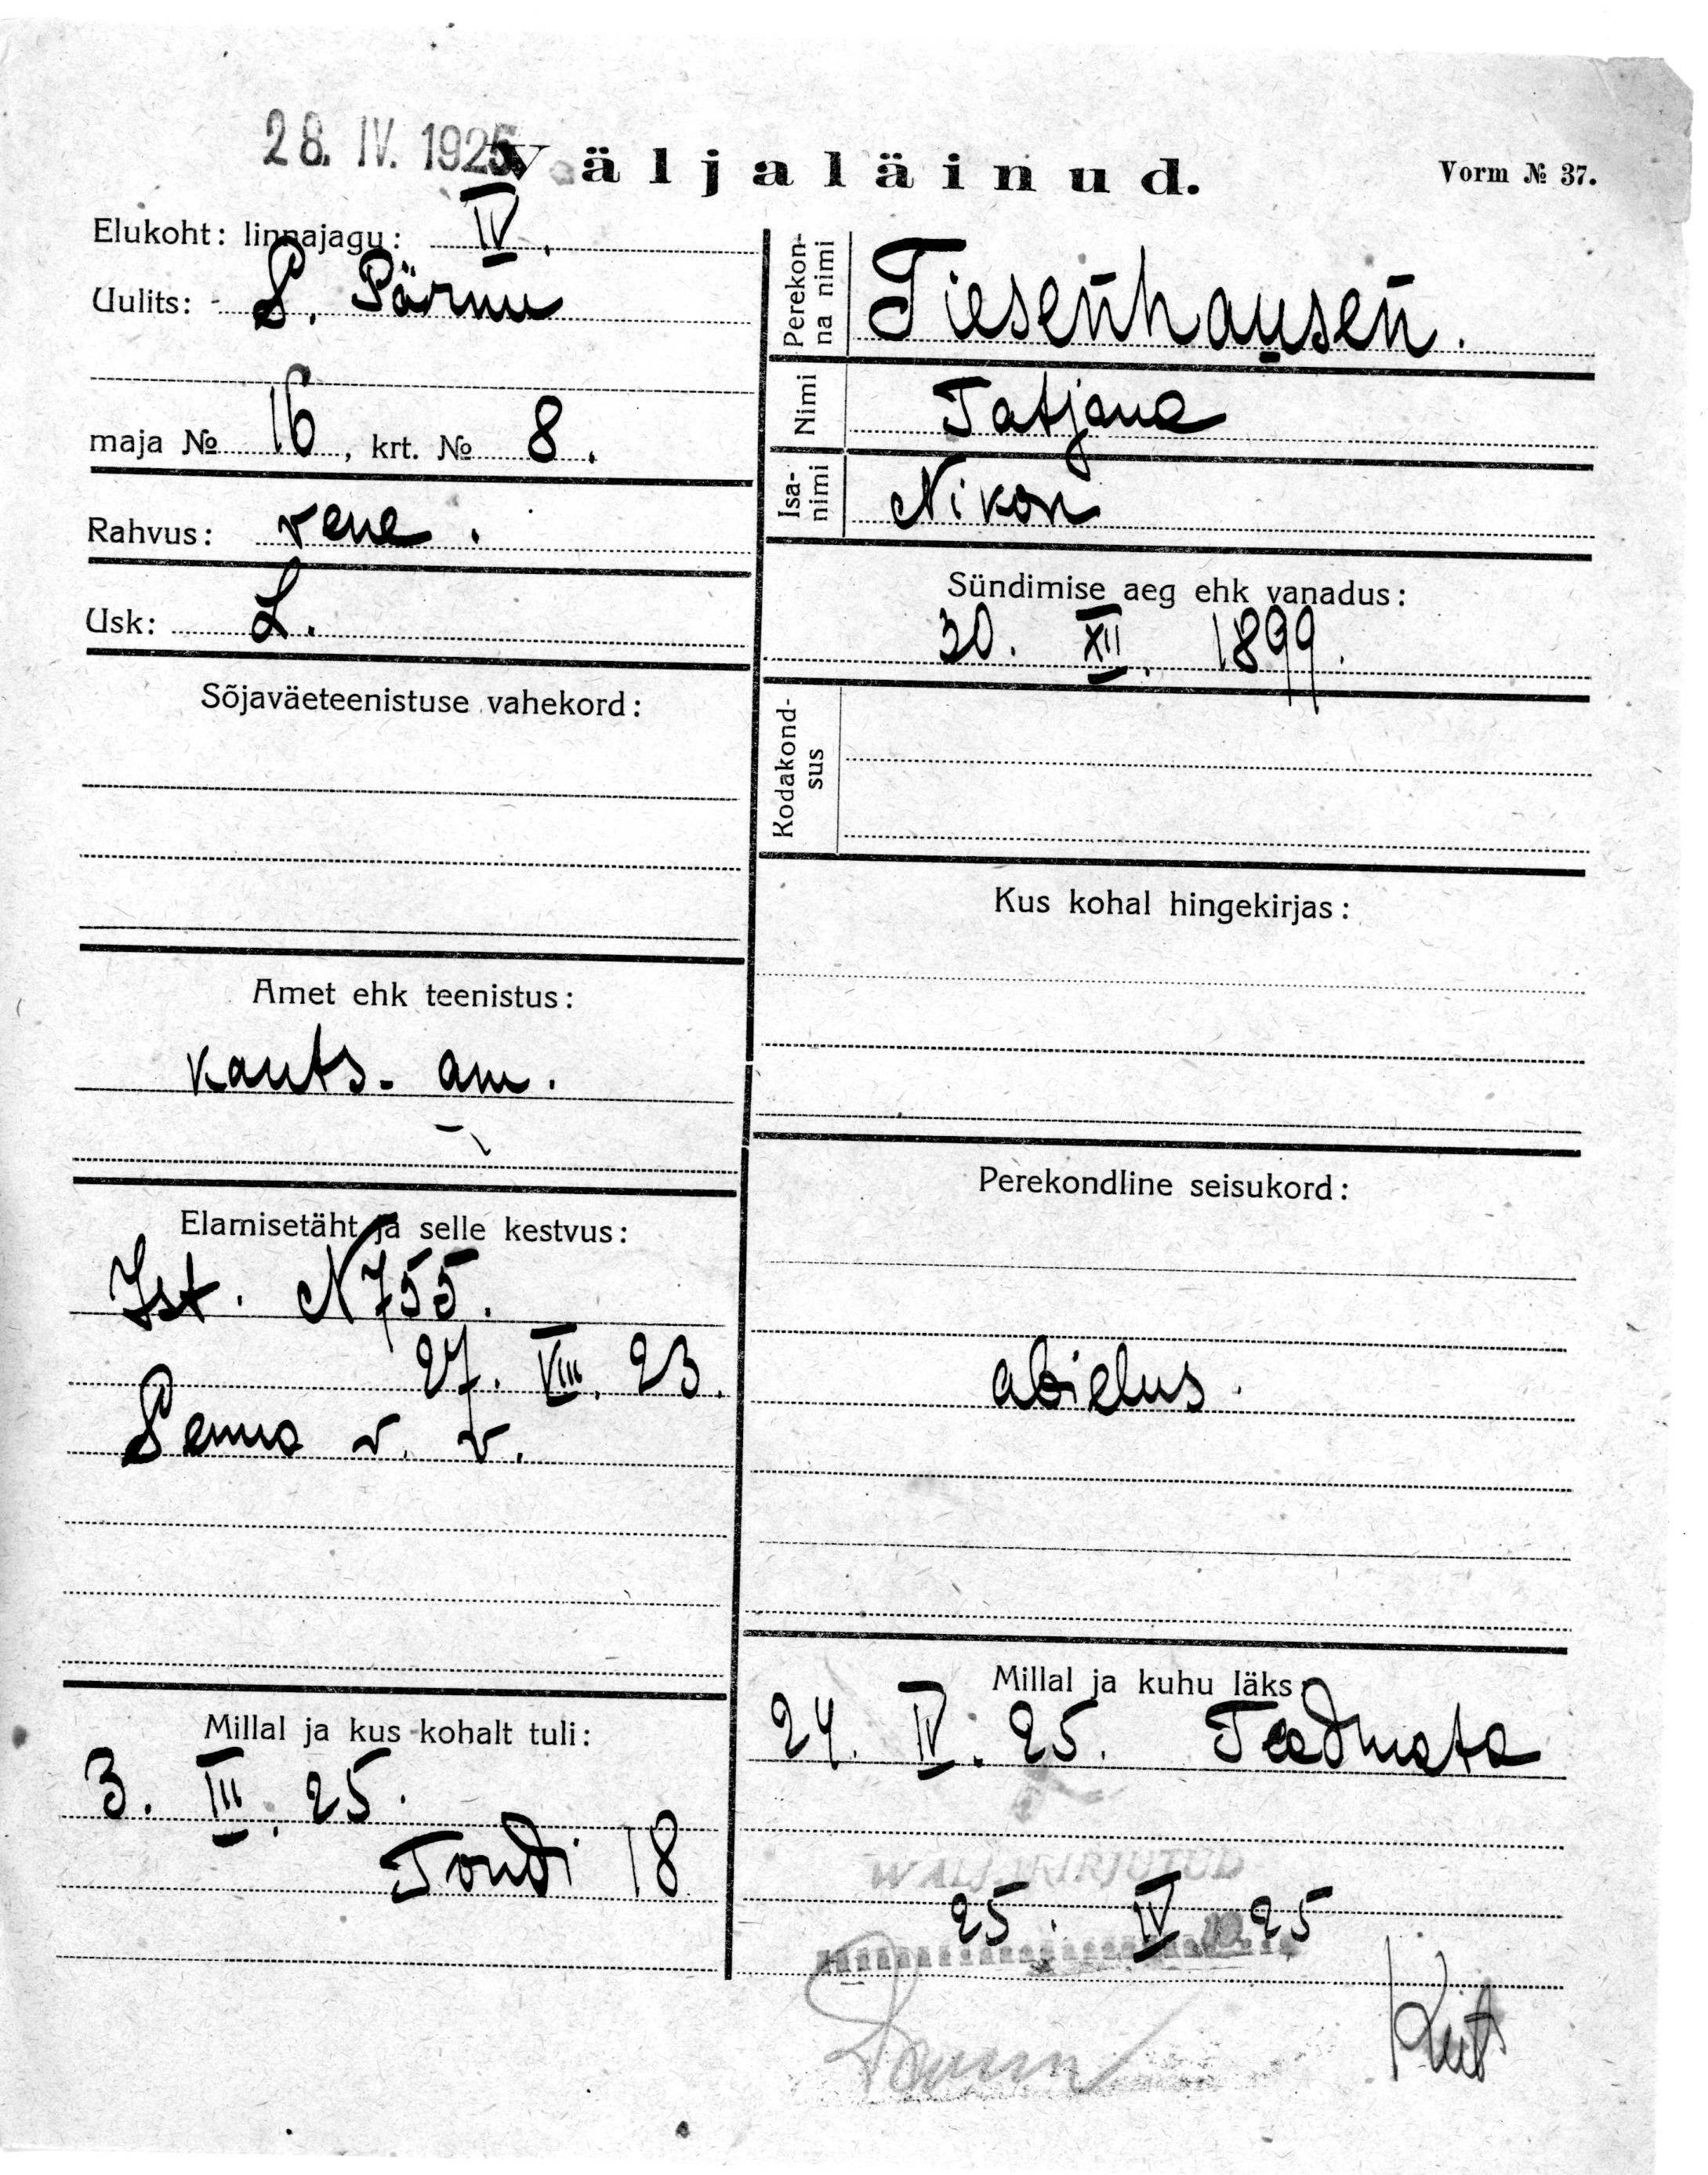 28. IV. 1925
Väljaläinud.
Vorm № 37.
Elukoht: linnajagu: IV.
Uulits: S. Pärnu
maja № 16, krt. № 8.
Rahvus: vene.
Usk: L.
Sõjaväeteenistuse vahekord:
Amet ehk teenistus:
kants. am.
Elamisetäht ja selle kestvus:
Ist. N 755.
27. VIII. 23.
v. v.
Millal ja kus kohalt tuli:
3. III. 25.
Tondi 18
Perekon-
na nimi
Tiesenhausen.
Nimi
Tatjana
Isa-
nimi
Nikon
Sündimise aeg ehk vanadus:
30. XII. 1899.
Kodakond-
sus
Kus kohal hingekirjas:
Perekondline seisukord:
abielus.
Millal ja kuhu läks:
24. IV. 25. Teadmata
WÄLJAKIRJUTUD
25. IV 25